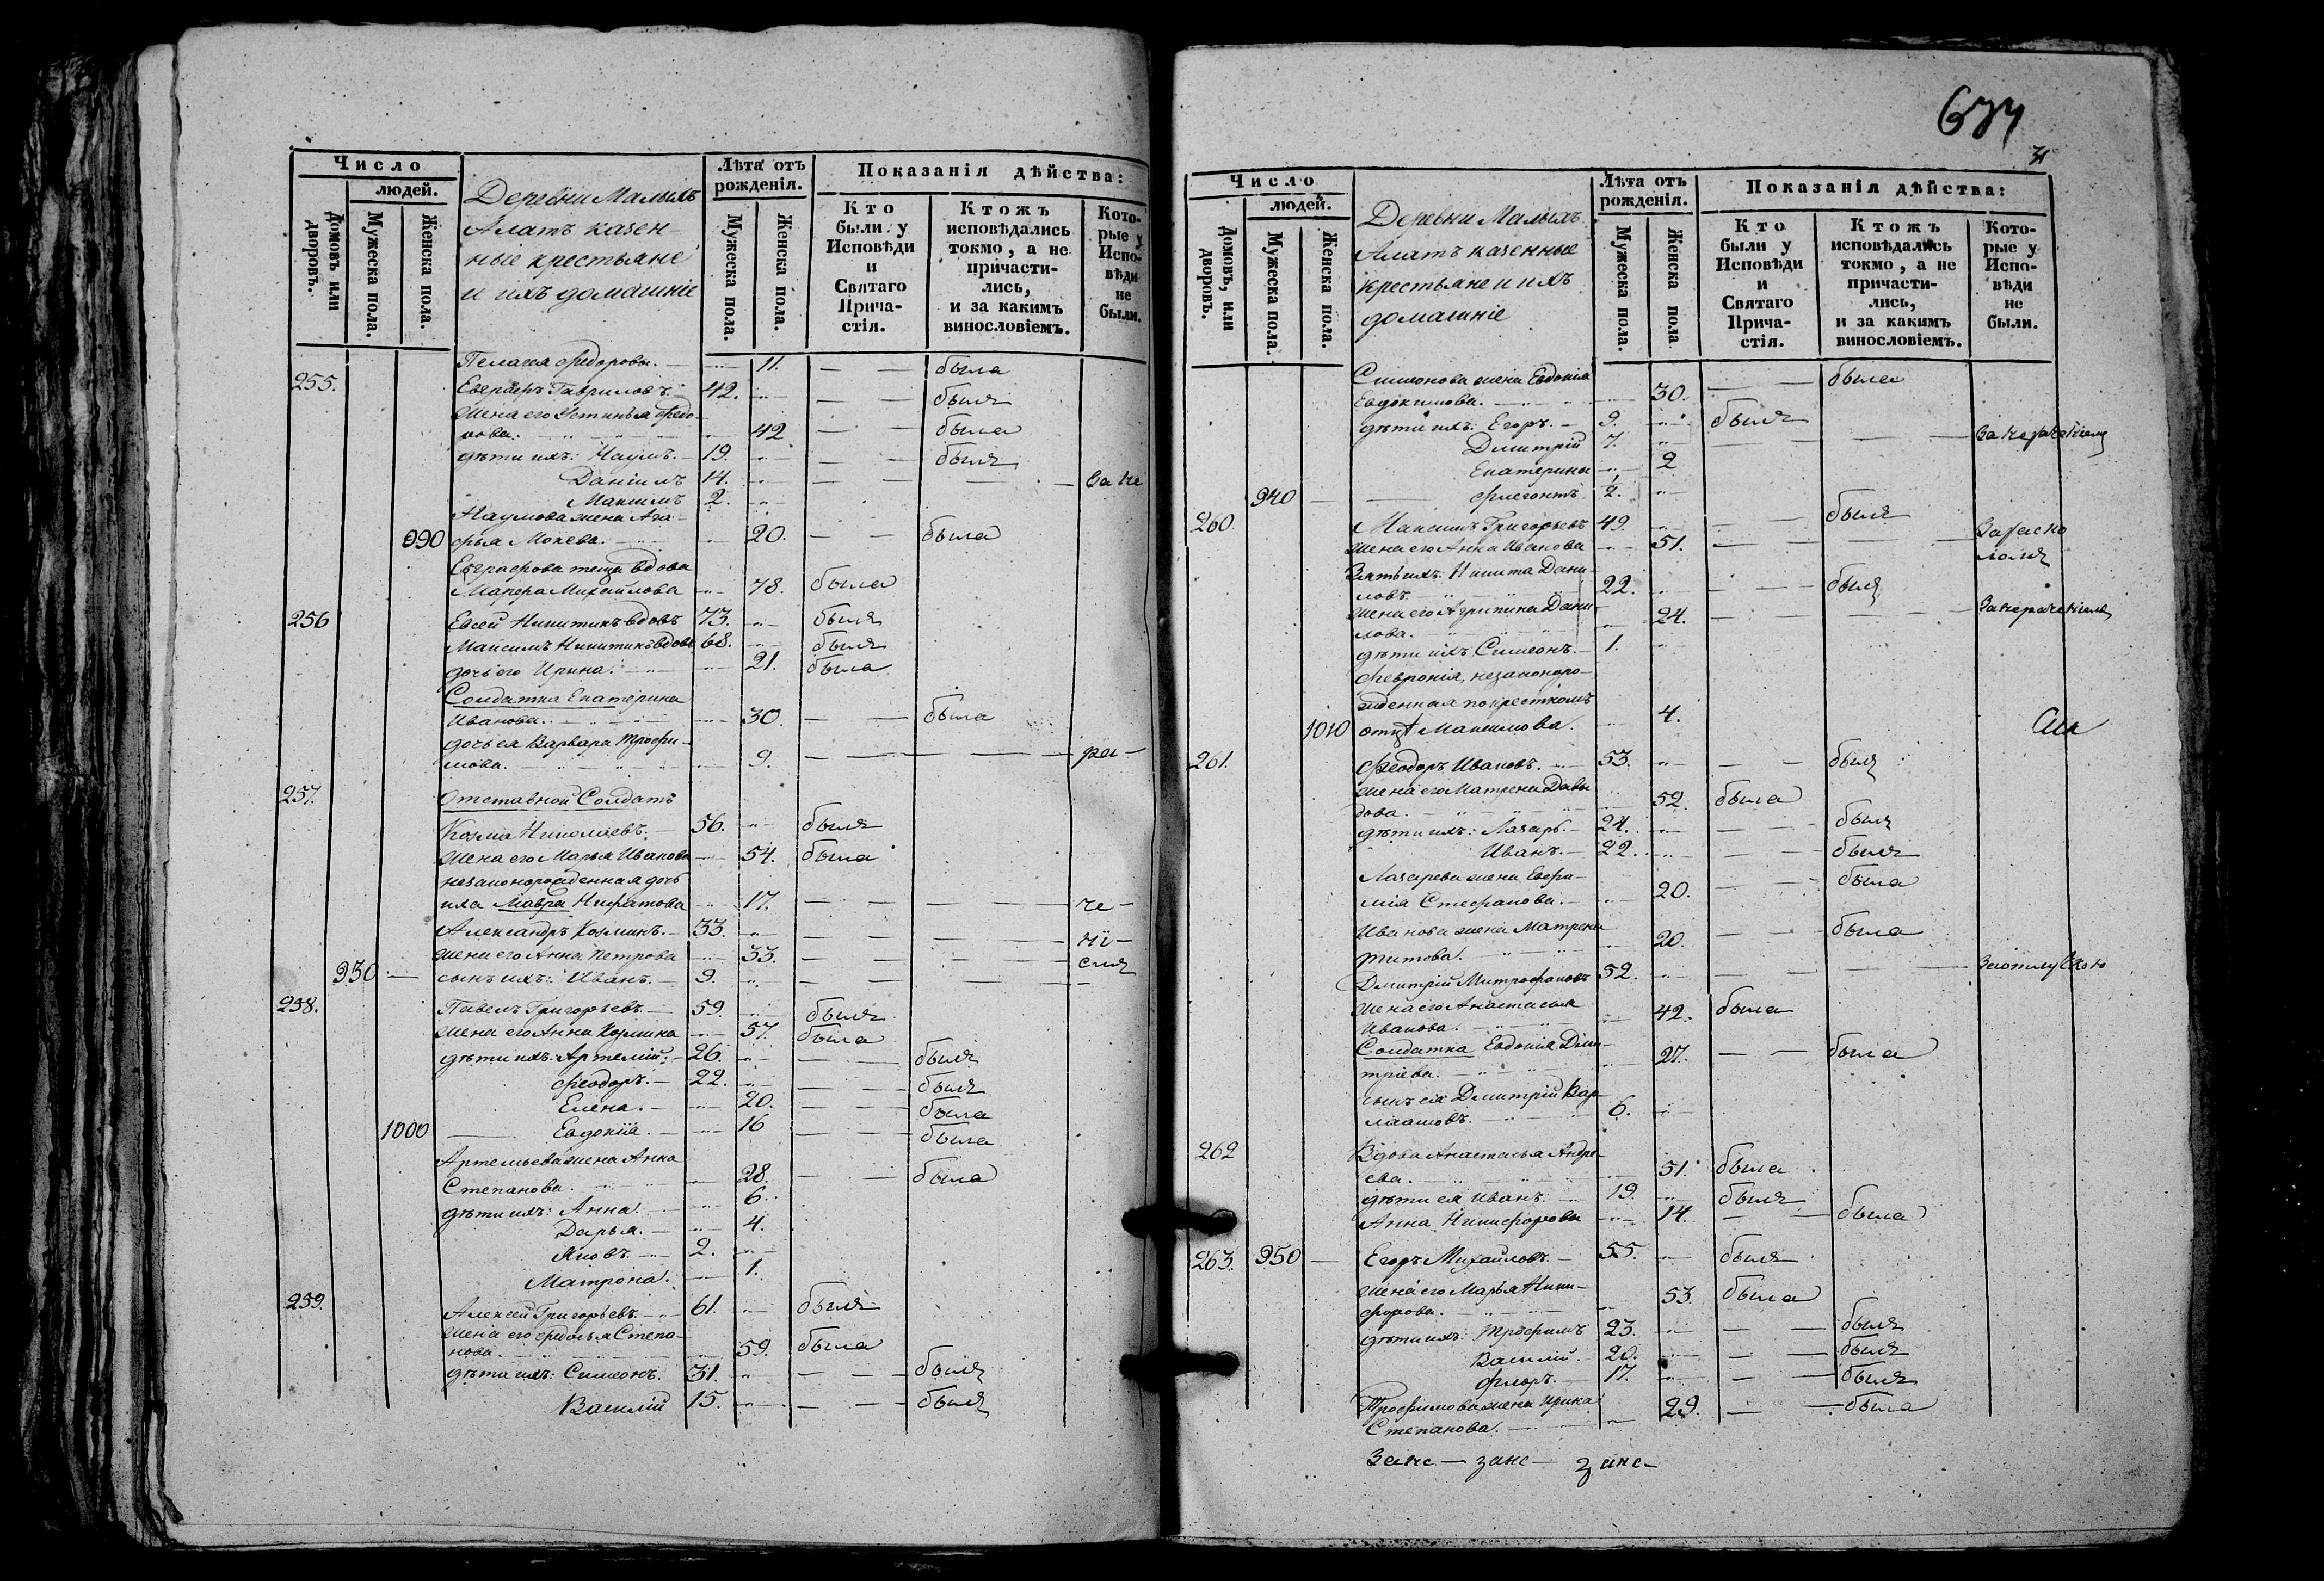 Число
людей.
Домовъ или дворовъ.
Мужеска пола.
Женска пола.
Деревни Малыхъ
Алатъ казен-
ные крестьяне
и ихъ домашніе
Лѣта отъ рожденія.
Мужеска пола.
Женска пола.
Показанія дѣйства:
Кто были у Исповѣди и Святаго Прича-стія.
Ктожъ исповѣдались токмо, а не причасти-лись, и за какимъ винословіемъ.
Кото-рые у Испо-вѣди не были.
Пелагея Федорова. 11. была
255. Евграфъ Гавриловъ. 42. былъ
жена его Устинья Федо-
рова. 42 была
дѣти ихъ: Наумъ. 19. былъ
Даніилъ 14. за не
Максимъ 2.
Наумова жена Ага-
990 фья Мокева. 20. была
Евграфова теща вдова
Марфа Михайлова 78. была
256 Евсей Никитинъ вдовъ 73. былъ
Максимъ Никитинъ вдовъ 68. былъ
дочь его Ирина. 21. была
Солдатка Екатерина
Иванова. 30. была
дочь ея Варвара Трофи-
мова. 9. ра-
257. Отставной Солдатъ
Козма Николаевъ. 56. былъ
жена его Марья Иванова 54. была
незаконорожденная дочь
ихъ Мавра Нифатова 17. че-
Александръ Козминъ. 33. ні-
жена его Анна Петрова 33. емъ
930 сынъ ихъ: Иванъ. 9.
258. Павелъ Григорьевъ. 59. былъ
жена его Анна Козмина 57. была
дѣти ихъ: Артемій. 26. былъ
Феодоръ. 22. былъ
Елена. 20. была
1000 Евдокія. 16 была
Артемьева жена Анна
Степанова. 28. была
дѣти ихъ: Анна. 6.
Дарья. 4.
Яковъ. 2.
Матрона. 1.
259. Алексей Григорьевъ. 61. былъ
жена его Федосья Степа-
нова. 59. была
дѣти ихъ: Симеонъ. 31. былъ
Василій 15. былъ
Число
людей.
Домовъ, или дворовъ.
Мужеска пола.
Женска пола.
Деревни Малыхъ
Алатъ казенные
крестьяне и ихъ
домашніе
Лѣта отъ рожденія.
Мужеска пола.
Женска пола
Показанія дѣйства:
Кто были у Исповѣди и Святаго Прича-стія.
Ктожъ исповѣдались токмо, а не причасти-лись, и за какимъ винословіемъ.
Кото-рые у Испо-вѣди не были.
Симеонова жена Евдокія
Евдокимова. 30. была
дѣти ихъ: Егоръ. 9. былъ
Дмитрій 7. за нераченіемъ
Екатерина 2
940 Флегонтъ ½.
260. Максимъ Григорьевъ 49. былъ
жена его Анна Иванова 51. За раско
ломъ
Зять ихъ: Никита Дани-
ловъ. 22. былъ
жена его Агрипина Дани-
лова. 24. За нераченіемъ
дѣти ихъ Симеонъ. 1.
Февронія, незаконоро-
жденная по крестномъ
1010 отцѣ Максимова. 4.
261. Феодоръ Ивановъ. 53. былъ
жена его Матрена Давы
дова. 52. была
дѣти ихъ: Лазарь. 24. былъ
Иванъ. 22. былъ
Лазарева жена Евфи-
мія Стефанова. 20. была
Иванова жена Матрена
Титова. 20. была
Дмитрій Митрофановъ 52. За отлучкою
жена его Анастасья
Иванова. 42. была
Солдатка Евдокія Дми-
тріева. 27. была
сынъ ея Дмитрій Вар-
лаамовъ. 6.
262 Вдова Анастасья Андре-
ева. 51. была
дѣти ея Иванъ. 19. былъ
Анна Никифорова 14. была
263. 950 Егоръ Михайловъ. 55. былъ
жена его Марья Ники-
форова. 53. была
дѣти ихъ: Трофимъ 23. былъ
Василій. 20. былъ
Флоръ. 17. былъ
Трофимова жена Ирина
Степанова. 29. была